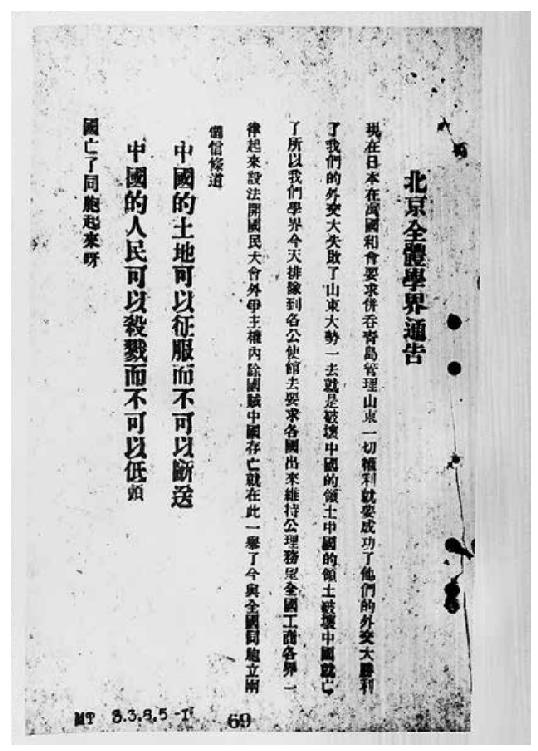 北京全體學界通告
現在日本在萬國和會要求併吞青島管理山東一切權利就要成功了他們的外交大勝利
了我們的外交大失敗了山東大勢一去就是破壞中國的領土中國的領土破壞中國就亡
了所以我們學界今天排隊到各公使館去要求各國出來維持公理務望全國工商各界一
律起來設法開國民大會外爭主權內除國賊中國存亡就在此一舉了今與全國同胞立兩
個信條道
中國的土地可以征服而不可以斷送
中國的人民可以殺戮而不可以低頭
國亡了同胞起來呀
MT 8.3.8.5-1
69